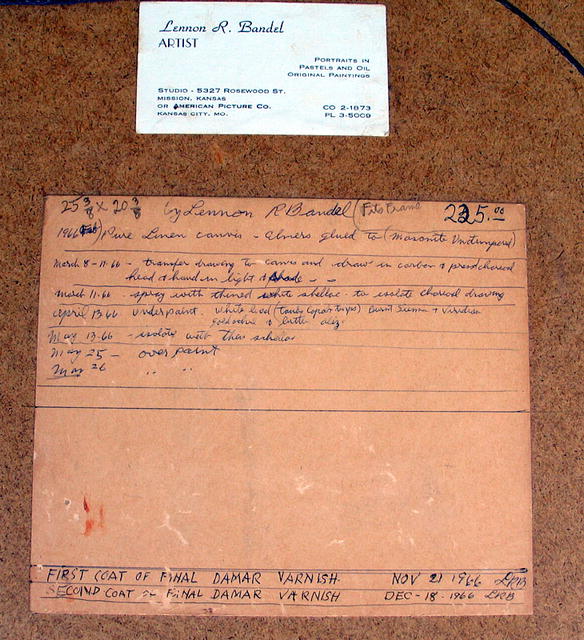 Lennon R. Bandel
ARTIST
PORTRAITS IN
PASTELS AND OIL
ORIGINAL PAINTINGS
STUDIO - 5327 ROSEWOOD ST.
MISSION, KANSAS
OR AMERICAN PICTURE CO.
KANSAS CITY, MO.
CO 2-1873
PL 3-5009
25 3/8 X 20 3/8 by Lennon R Bandel (Fits Frame 225.00
1966 Pure Linen canvis - glued to (Masonite Untempered)
March 8-11-66 - transfer drawing to canvis and draw in carbon &
head & hand in light & shade - -
March 11-66 - spray with thined white shellac to isolate charcoal drawing
April 13 66 Underpaint. White lead (Burnt Sienna & Viridian
May 13-66 - isolate with thin
May 25 - over paint
May 26 " "
FIRST COAT OF FINAL DAMAR VARNISH. NOV 21 1966 LRB
SECOND COAT OF FINAL DAMAR VARNISH DEC-18-1966 LRB